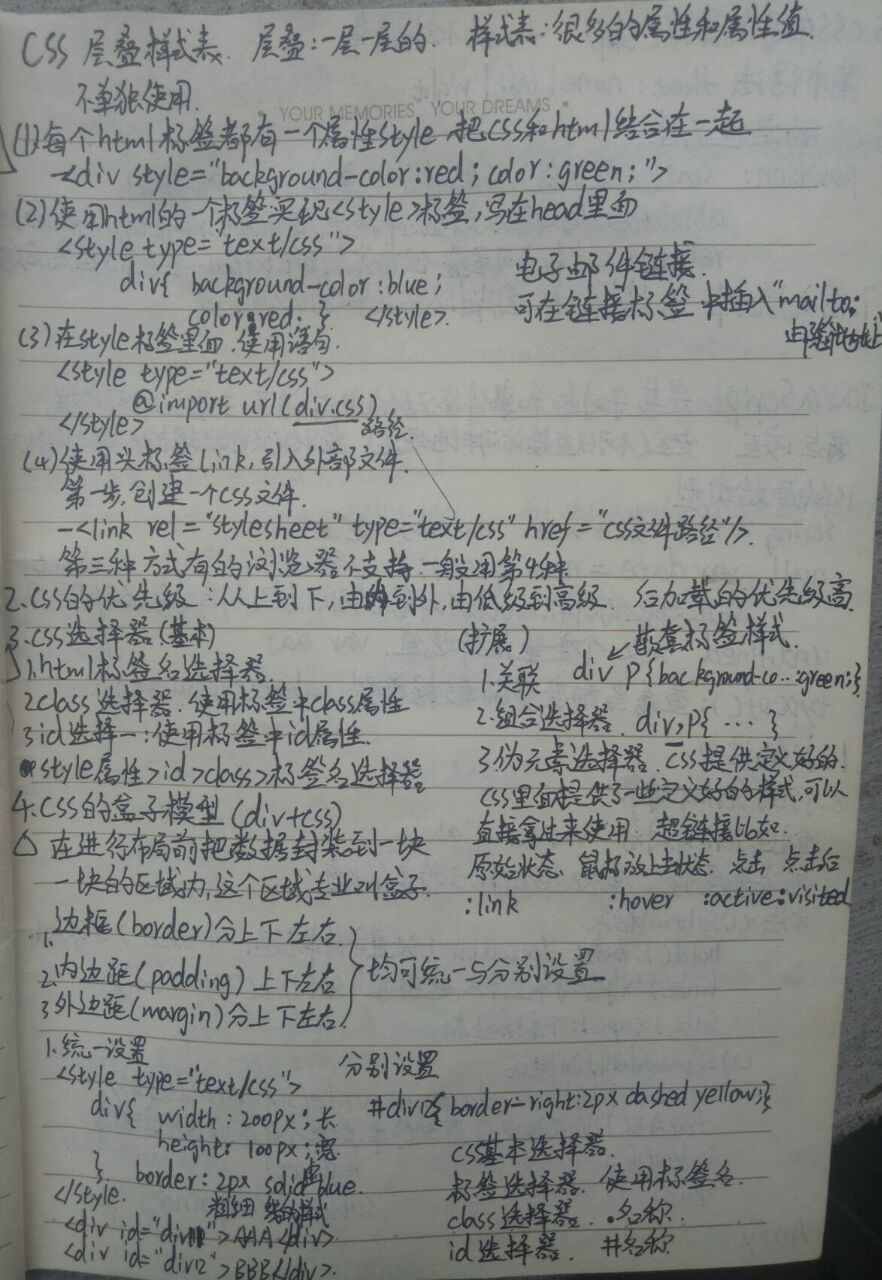 CSS 层叠样式表. 层叠:一层一层的. 样式表:很多的属性和属性值.
不单独使用.
YOUR MEMORIES, YOUR DREAMS
(1)每个html标签都有一个属性style,把css和html结合在一起
<div style="background-color:red; color:green;">
(2)使用html的一个标签实现<style>标签,写在head里面
<style type="text/css">
div{ background-color:blue;
color:red. } </style>.
电子邮件链接.
可在链接标签中插入"mailto:
邮箱地址"
(3)在style标签里面,使用语句.
<style type="text/css">
@import url(div.css)
</style> 路径.
(4)使用头标签link,引入外部文件.
第一步,创建一个css文件.
<link rel="stylesheet" type="text/css" href="css文件路径"/>.
第三种方式有的浏览器不支持,一般用第4种.
2.css的优先级:从上到下,由内到外,由低级到高级. 后加载的优先级高
3.css选择器(基本)
1.html标签名选择器.
2.class选择器.使用标签中class属性
3.id选择一:使用标签中id属性.
style属性>id>class>标签名选择器.
(扩展) 嵌套标签样式.
1.关联 div p{background-co…:green;}
2.组合选择器. div,p{ … }
3.伪元素选择器. css提供定义好的.
css里面提供了一些定义好的样式,可以
直接拿过来使用. 超链接比如.
原始状态、鼠标放上去状态. 点击 点击后
:link :hover :active :visited
4.css的盒子模型(div+css)
△ 在进行布局前把数据封装到一块
一块的区域内,这个区域专业叫盒子.
1.边框(border)分上下左右.
2.内边距(padding)上下左右
3.外边距(margin)分上下左右.
均可统一与分别设置
1.统一设置
<style type="text/css">
div{ width:200px;长
height:100px;宽
} border:2px solid blue.
</style. 粗细 线的样式
<div id="div11">AAA</div>
<div id="div12">BBB</div>.
分别设置
#div12{border-right:2px dashed yellow;}
css基本选择器.
标签选择器. 使用标签名.
class选择器. .名称.
id选择器. #名称